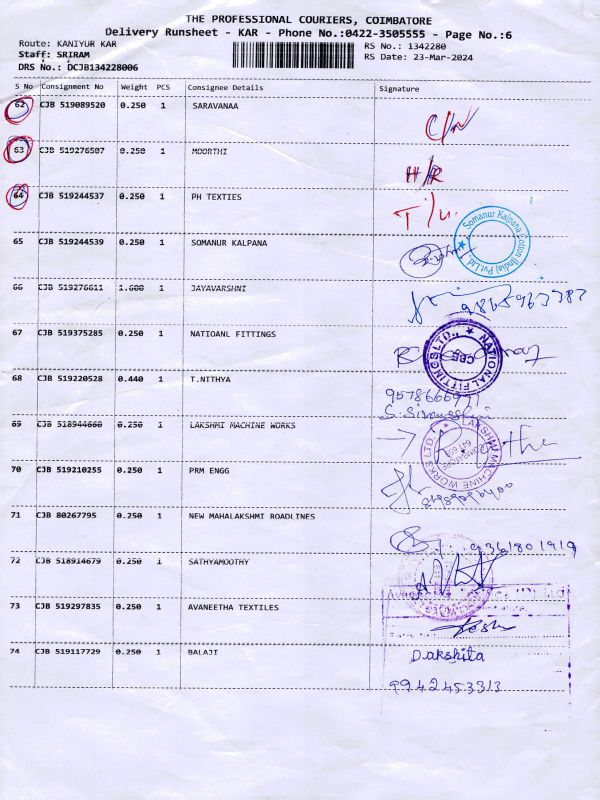 THE PROFESSIONAL COURIERS, COIMBATORE
Delivery Runsheet - KAR - Phone No.:0422-3505555 - Page No.:6
Route: KANIYUR KAR RS No.: 1342280
Staff: SRIRAM RS Date: 23-Mar-2024
DRS No.: DCJB134228006
S No Consignment No Weight PCS Consignee Details Signature
62 CJB 519089520 0.250 1 SARAVANAA
63 CJB 519276507 0.250 1 MOORTHI
H/R
64 CJB 519244537 0.250 1 PH TEXTIES
65 CJB 519244539 0.250 1 SOMANUR KALPANA
Somanur Kalpana Coton (India) Pvt.Ltd.
66 CJB 519276611 1.680 1 JAYAVARSHNI
67 CJB 519375285 0.250 1 NATIOANL FITTINGS
NATIONAL FITTINGS LTD., CBE
68 CJB 519220528 0.440 1 T.NITHYA
69 CJB 518944660 0.250 1 LAKSHMI MACHINE WORKS
LAKSHMI MACHINE WORKS LTD.
70 CJB 519210255 0.250 1 PRM ENGG
71 CJB 80267795 0.250 1 NEW MAHALAKSHMI ROADLINES
9361801919
72 CJB 518914679 0.250 1 SATHYAMOOTHY
73 CJB 519297835 0.250 1 AVANEETHA TEXTILES
74 CJB 519117729 0.250 1 BALAJI
Dakshita
9942453313